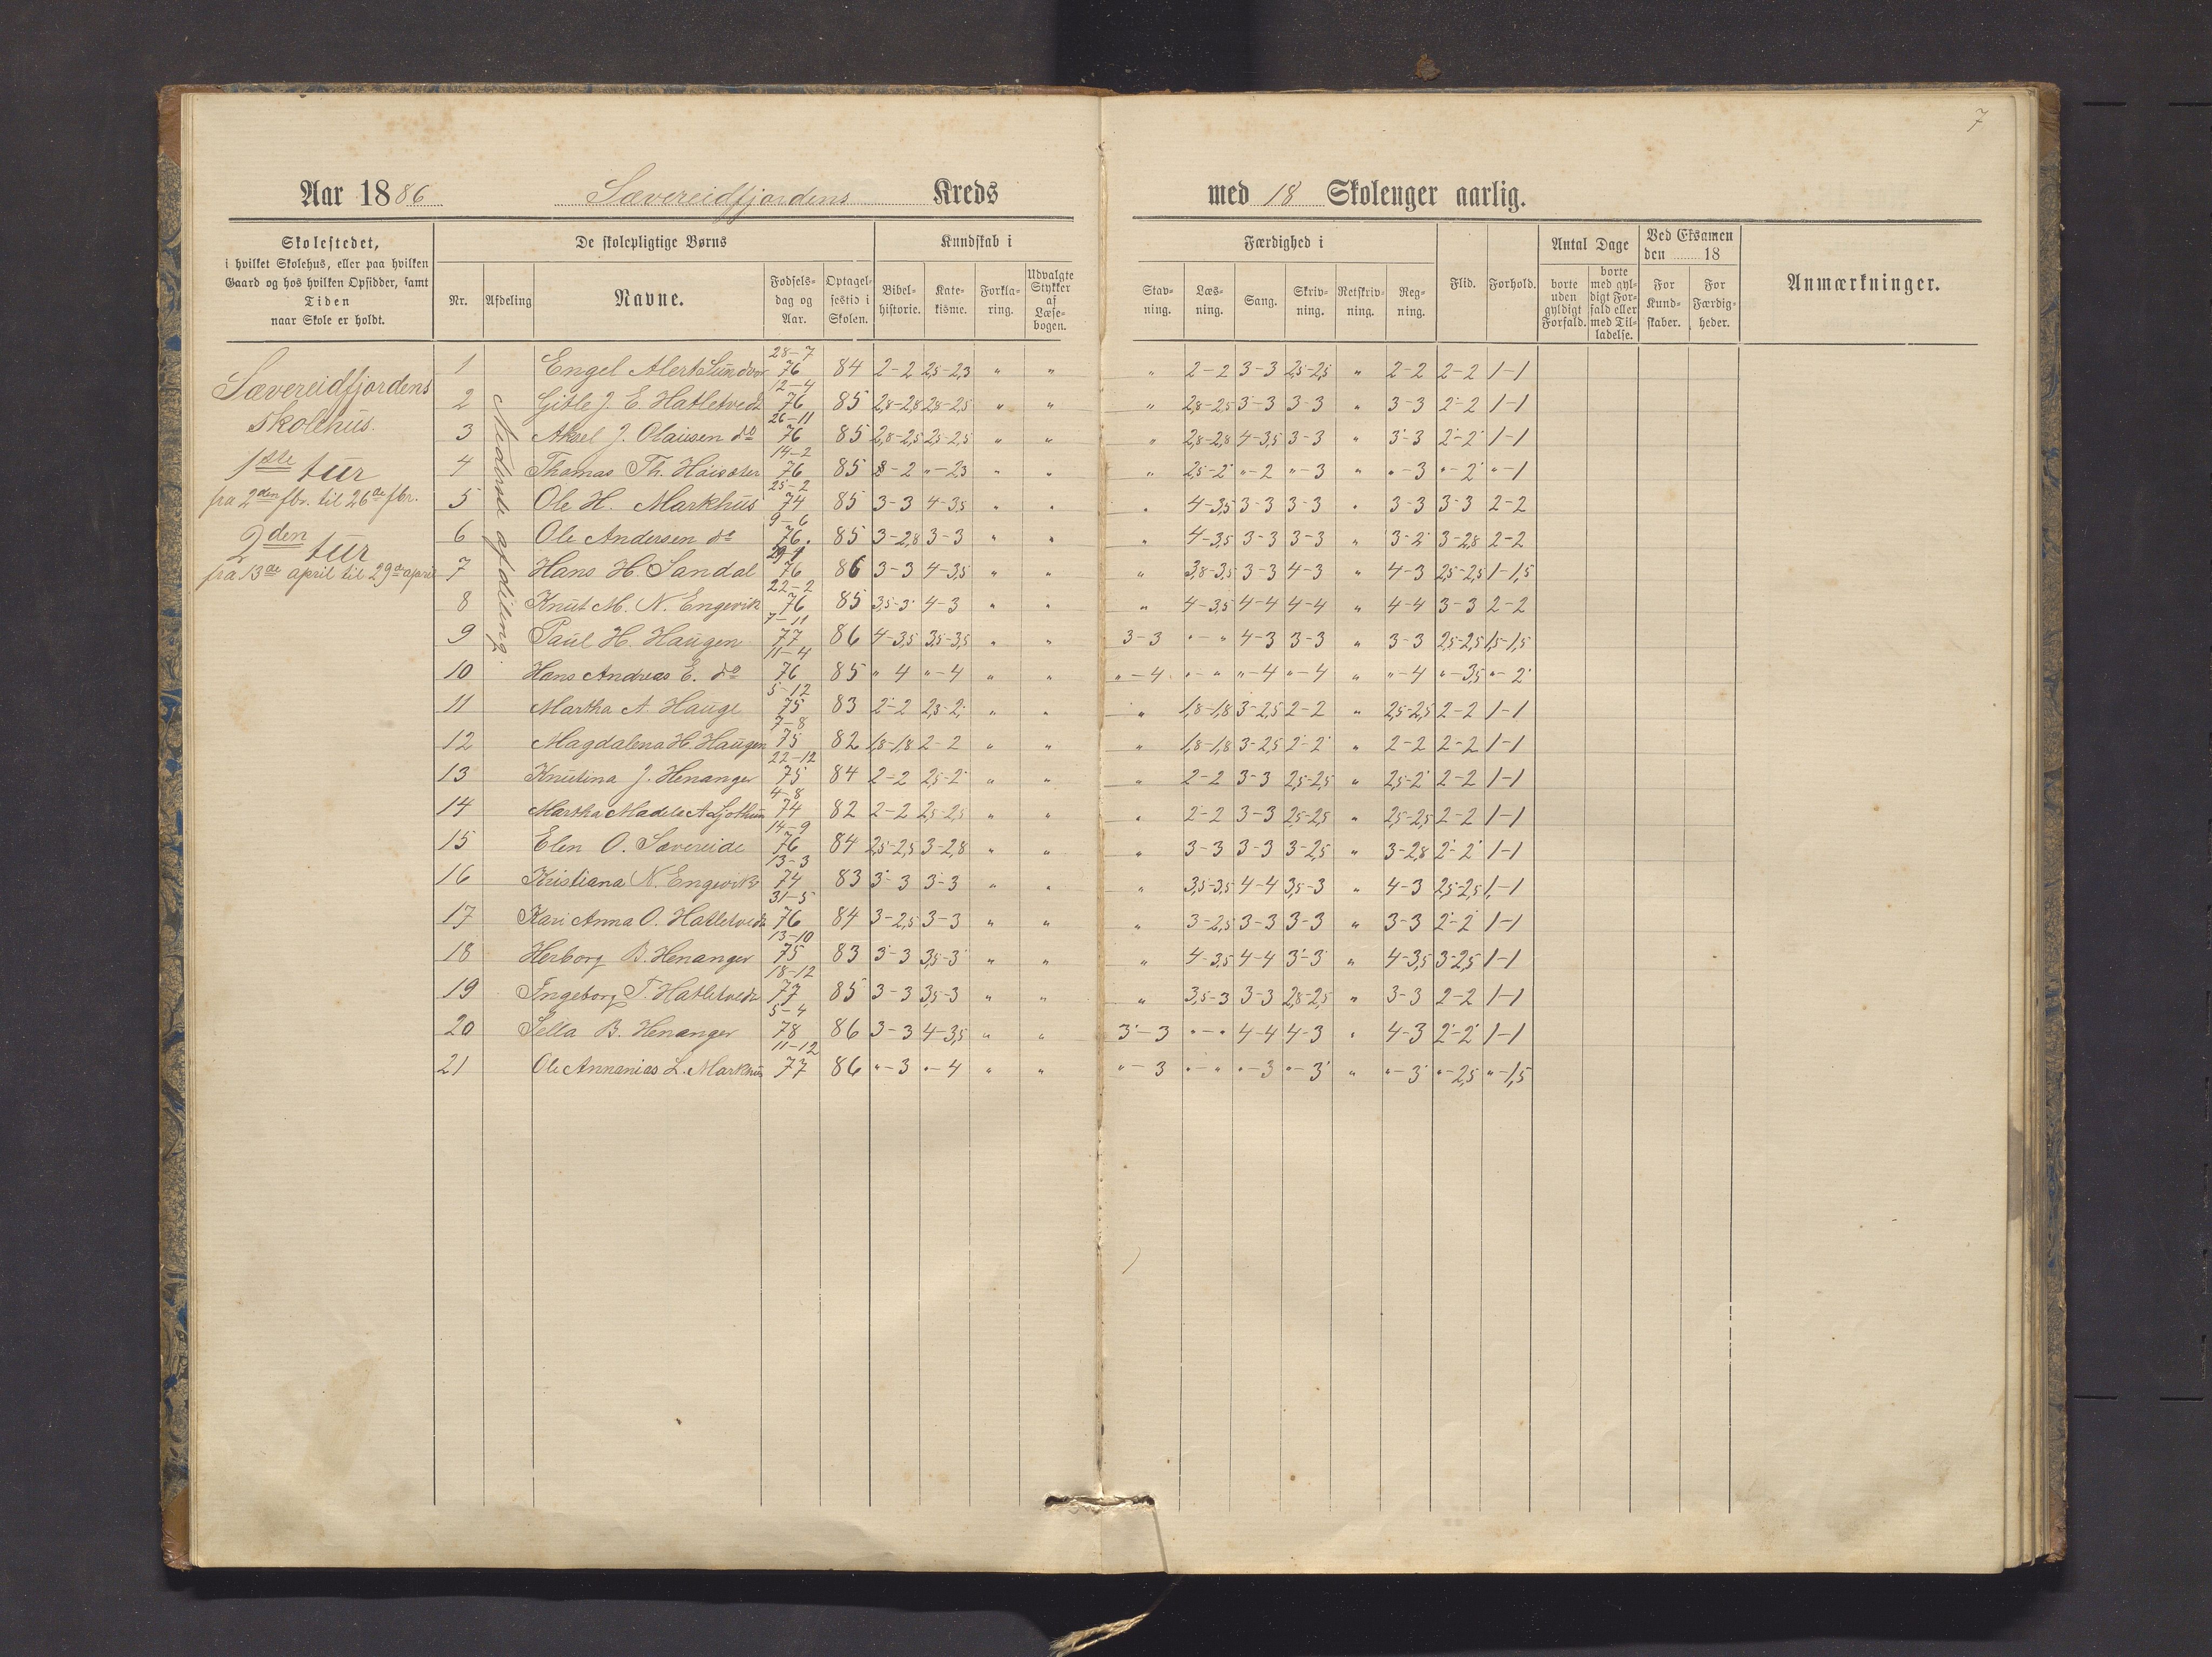 7
Aar 1886 Sævereidfjordens Kreds med 18 Skoleuger aarlig.
Skolestedet, i hvilket Skolehus, eller paa hvilken Gaard og hos hvilken Opsidder, samt Tiden naar Skole er holdt.
De skolepligtige Børns
Kundskab i
Færdighed i
Flid. Forhold.
Antal Dage
Ved Eksamen den 18
Anmærkninger.
Nr. Afdeling Navne. Fødsels-dag og Aar. Optagel-sestid i Skolen. Bibel-historie. Kate-kisme. Forkla-ring. Udvalgte Stykker af Læse-bogen. Stav-ning. Læs-ning. Sang. Skriv-ning. Retskriv-ning. Reg-ning. borte uden gyldigt Forfald. borte med gyl-digt For-fald eller med Til-ladelse. For Kund-skaber. For Færdig-heder.
Sævereidfjordens
Skolehus.
1ste tur
fra 2den fbr. til 26de fbr.
2den tur
fra 13de april til 29de april
Nederste afdeling.
1 Engel Alert Sundvor 28-7 76 84 2-2 2,5-2,3 " " " 2-2 3-3 2,5-2,5 " 2-2 2-2 1-1
2 Gitle J. E. Hatletvedt 12-4 76 85 2,8-2,8 2,8-2,5 " " " 2,8-2,5 3-3 3-3 " 3-3 2-2 1-1
3 Aksel J. Olausen do 26-11 76 85 2,8-2,5 2,5-2,5 " " " 2,8-2,8 4-3,5 3-3 " 3-3 2-2 1-1
4 Thomas Th. 14-2 76 85 -2 "-2,3 " " " 2,5-2 "-2 "-3 " "-3 "-2 "-1
5 Ole H. Markhus 25-2 74 85 3-3 4-3,5 " " " 4-3,5 3-3 3-3 " 3-3 3-3 2-2
6 Ole Andersen do 9-6 76. 85 3-2,8 3-3 " " " 4-3,5 3-3 3-3 " 3-2 3-2,8 2-2
7 Hans H. Sandal 76 86 3-3 4-3,5 " " " 3,8-3,5 3-3 4-3 " 4-3 2,5-2,5 1-1,5
8 Knut M. N. Engevik 22-2 76 85 3,5-3 4-3 " " " 4-3,5 4-4 4-4 " 4-4 3-3 2-2
9 Paul H. Haugen 7-11 77 86 4-3,5 3,5-3,5 " " 3-3 "-" 4-3 3-3 " 3-3 2,5-2,5 1,5-1,5
10 Hans Andreas E. do 11-4 76 85 " 4 "-4 " " "-4 "-" "-4 "-4 " "-4 "-3,5 "-2
11 Martha A. Hauge 5-12 75 83 2-2 2,3-2, " " " 1,8-1,8 3-2,5 2-2 " 2,5-2,5 2-2 1-1
12 Magdalena H. Haugen 7-8 75 82 1,8-1,8 2-2 " " " 1,8-1,8 3-2,5 2-2 " 2-2 2-2 1-1
13 Knutina J. Henanger 22-12 75 84 2-2 2,5-2 " " " 2-2 3-3 2,5-2,5 " 2,5-2 2-2 1-1
14 Martha Madele A. 4-8 74 82 2-2 2,5-2,5 " " " 2-2 3-3 2,5-2,5 " 2,5-2,5 2-2 1-1
15 Elen O. Sævereide 14-9 76 84 2,5-2,5 3-2,8 " " " 3-3 3-3 3-2,5 " 3-2,8 2-2 1-1
16 Kristiana N. Engevik 13-3 74 83 3-3 3-3 " " " 3,5-3,5 4-4 3,5-3 " 4-3 2,5-2,5 1,-1
17 Kari Anna O. Hatletvedt 31-5 76 84 3-2,5 3-3 " " " 3-2,5 3-3 3-3 " 3-3 2-2 1-1
18 Herborg B. Henanger 13-10 75 83 3-3 3,5-3 " " " 4-3,5 4-4 3-3 " 4-3,5 3-2,5 1-1
19 Ingeborg T. Hatletvedt 18-12 77 85 3-3 3,5-3 " " " 3,5-3 3-3 2,8-2,5 " 3-3 2-2 1-1
20 Sella B. Henanger 5-4 78 86 3-3 4-3,5 " " 3-3 "-" 4-4 4-3 " 4-3 2-2 1-1
21 Ole Annanias L. Markhus 11-12 77 86 "-3 "-4 " " "-3 "-" "-3 "-3 " "-3 "-2,5 "-1,5